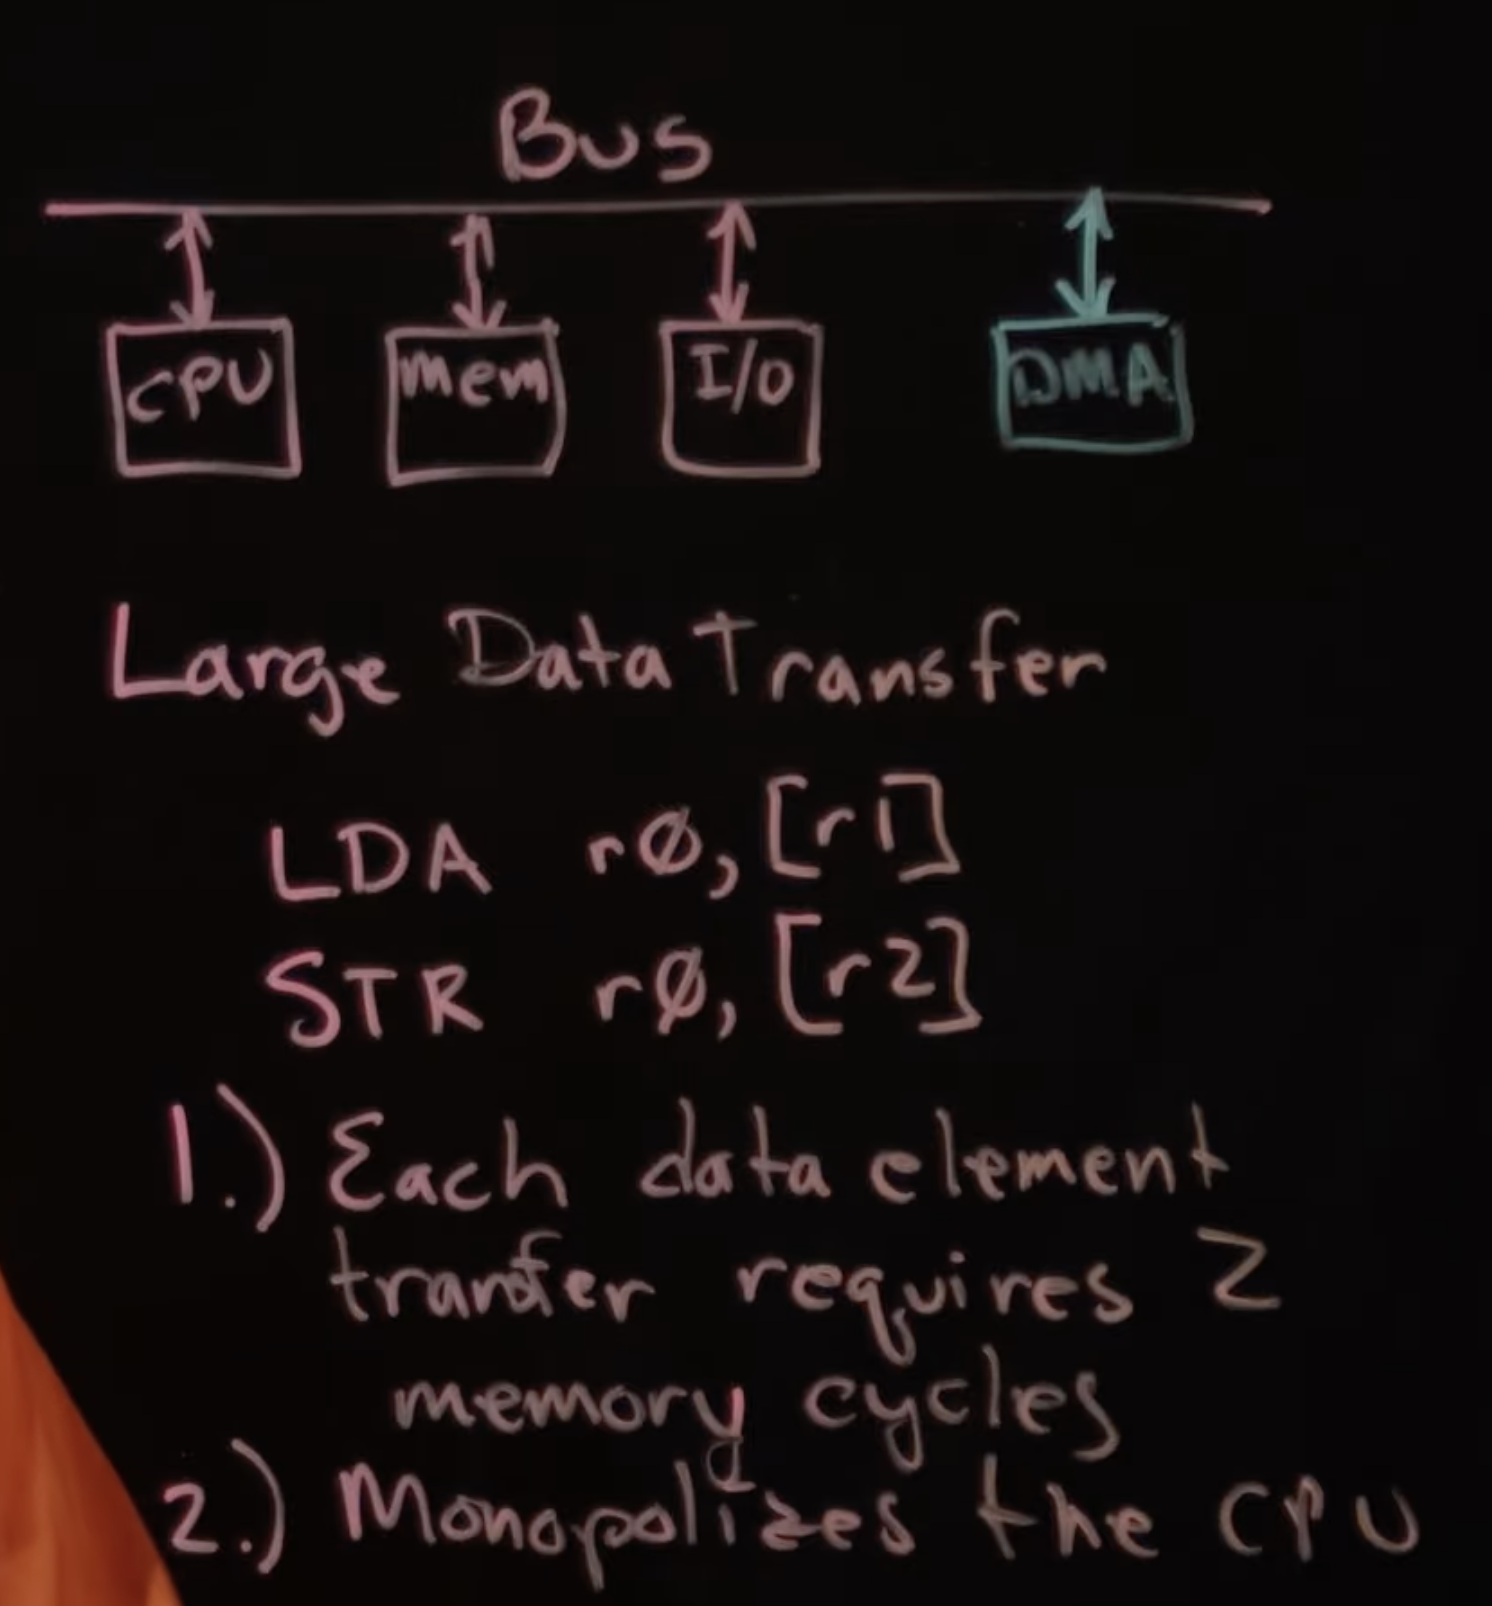 Bus
CPU mem I/O DMA
Large Data Transfer
LDA rø, [r1]
STR rø, [r2]
1.) Each data element
transfer requires 2
memory cycles
2.) Monopolizes the CPU